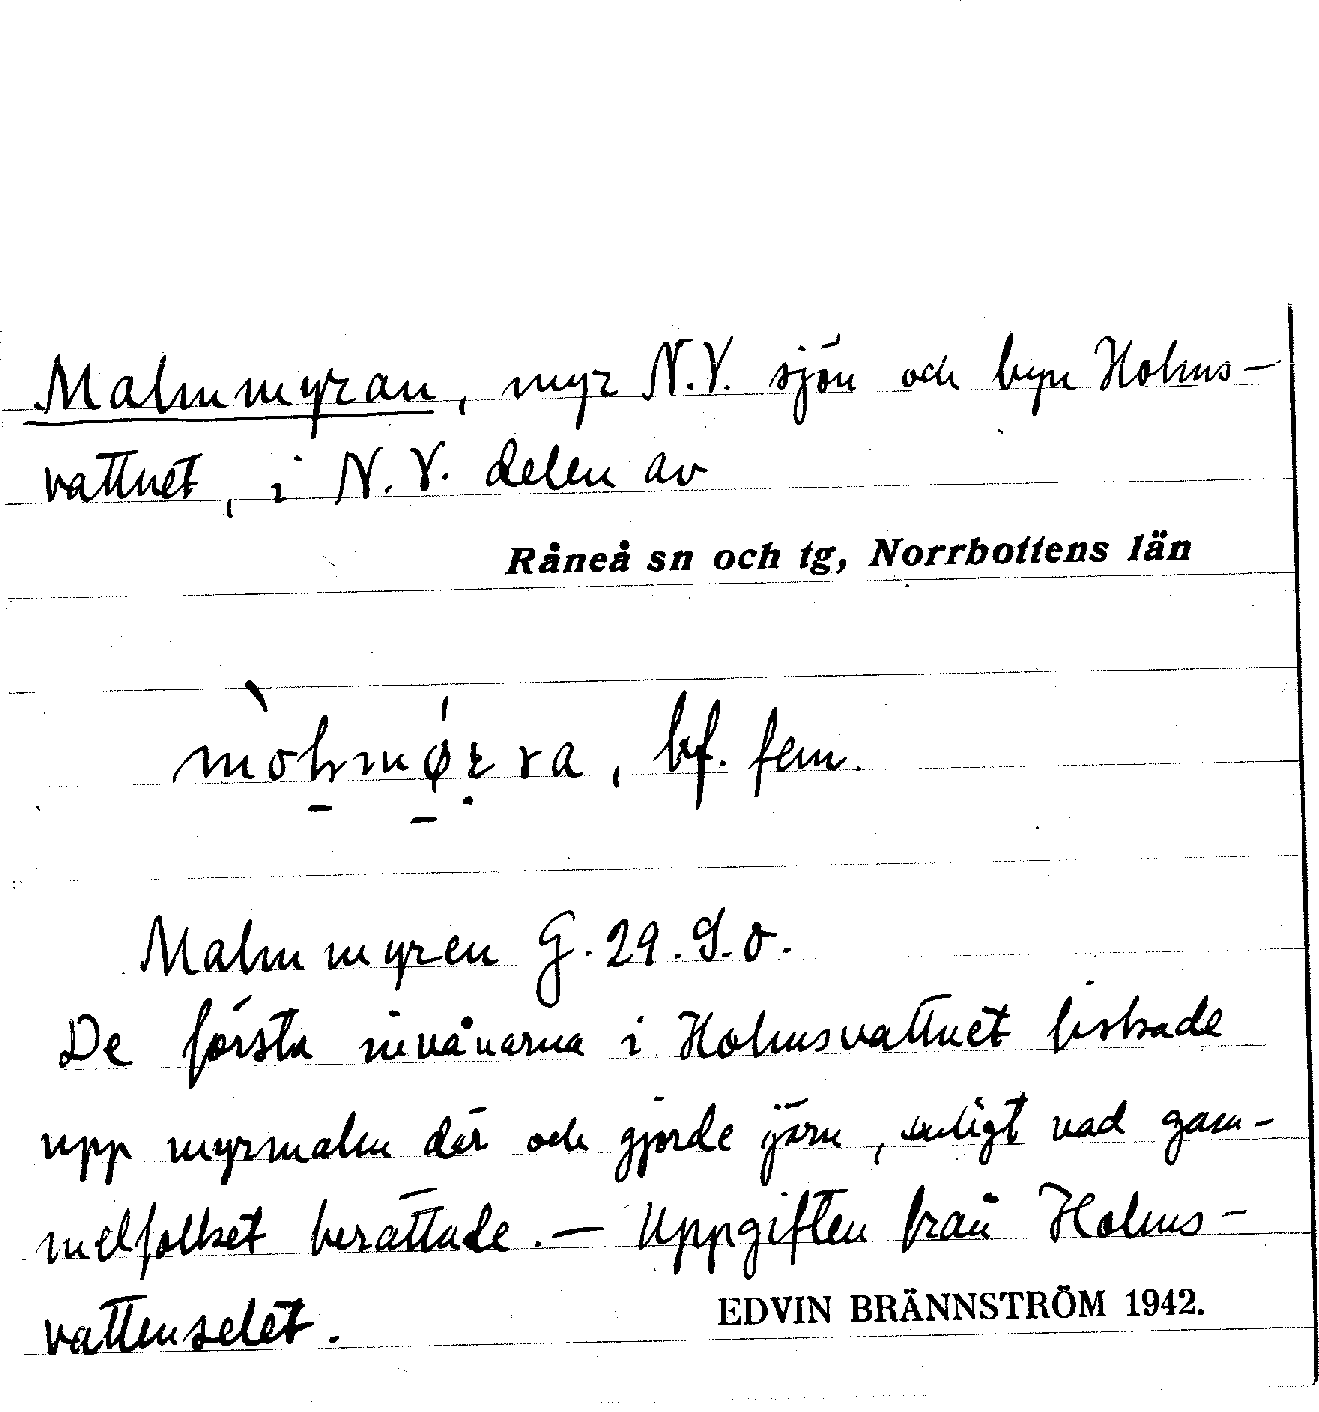 Malmmyran, myr N.V. sjön och byn Holms-
vattnet, i N.V. delen av
Råneå sn och tg, Norrbottens län
bf. fem.
Malmmyren G. 29. S.O.
De första invånarna i Holmsvattnet fiskade
upp myrmalm där och gjorde järn, enligt vad gam-
melfolket berättade. — Uppgiften från Holms-
vattenselet.
EDVIN BRÄNNSTRÖM 1942.